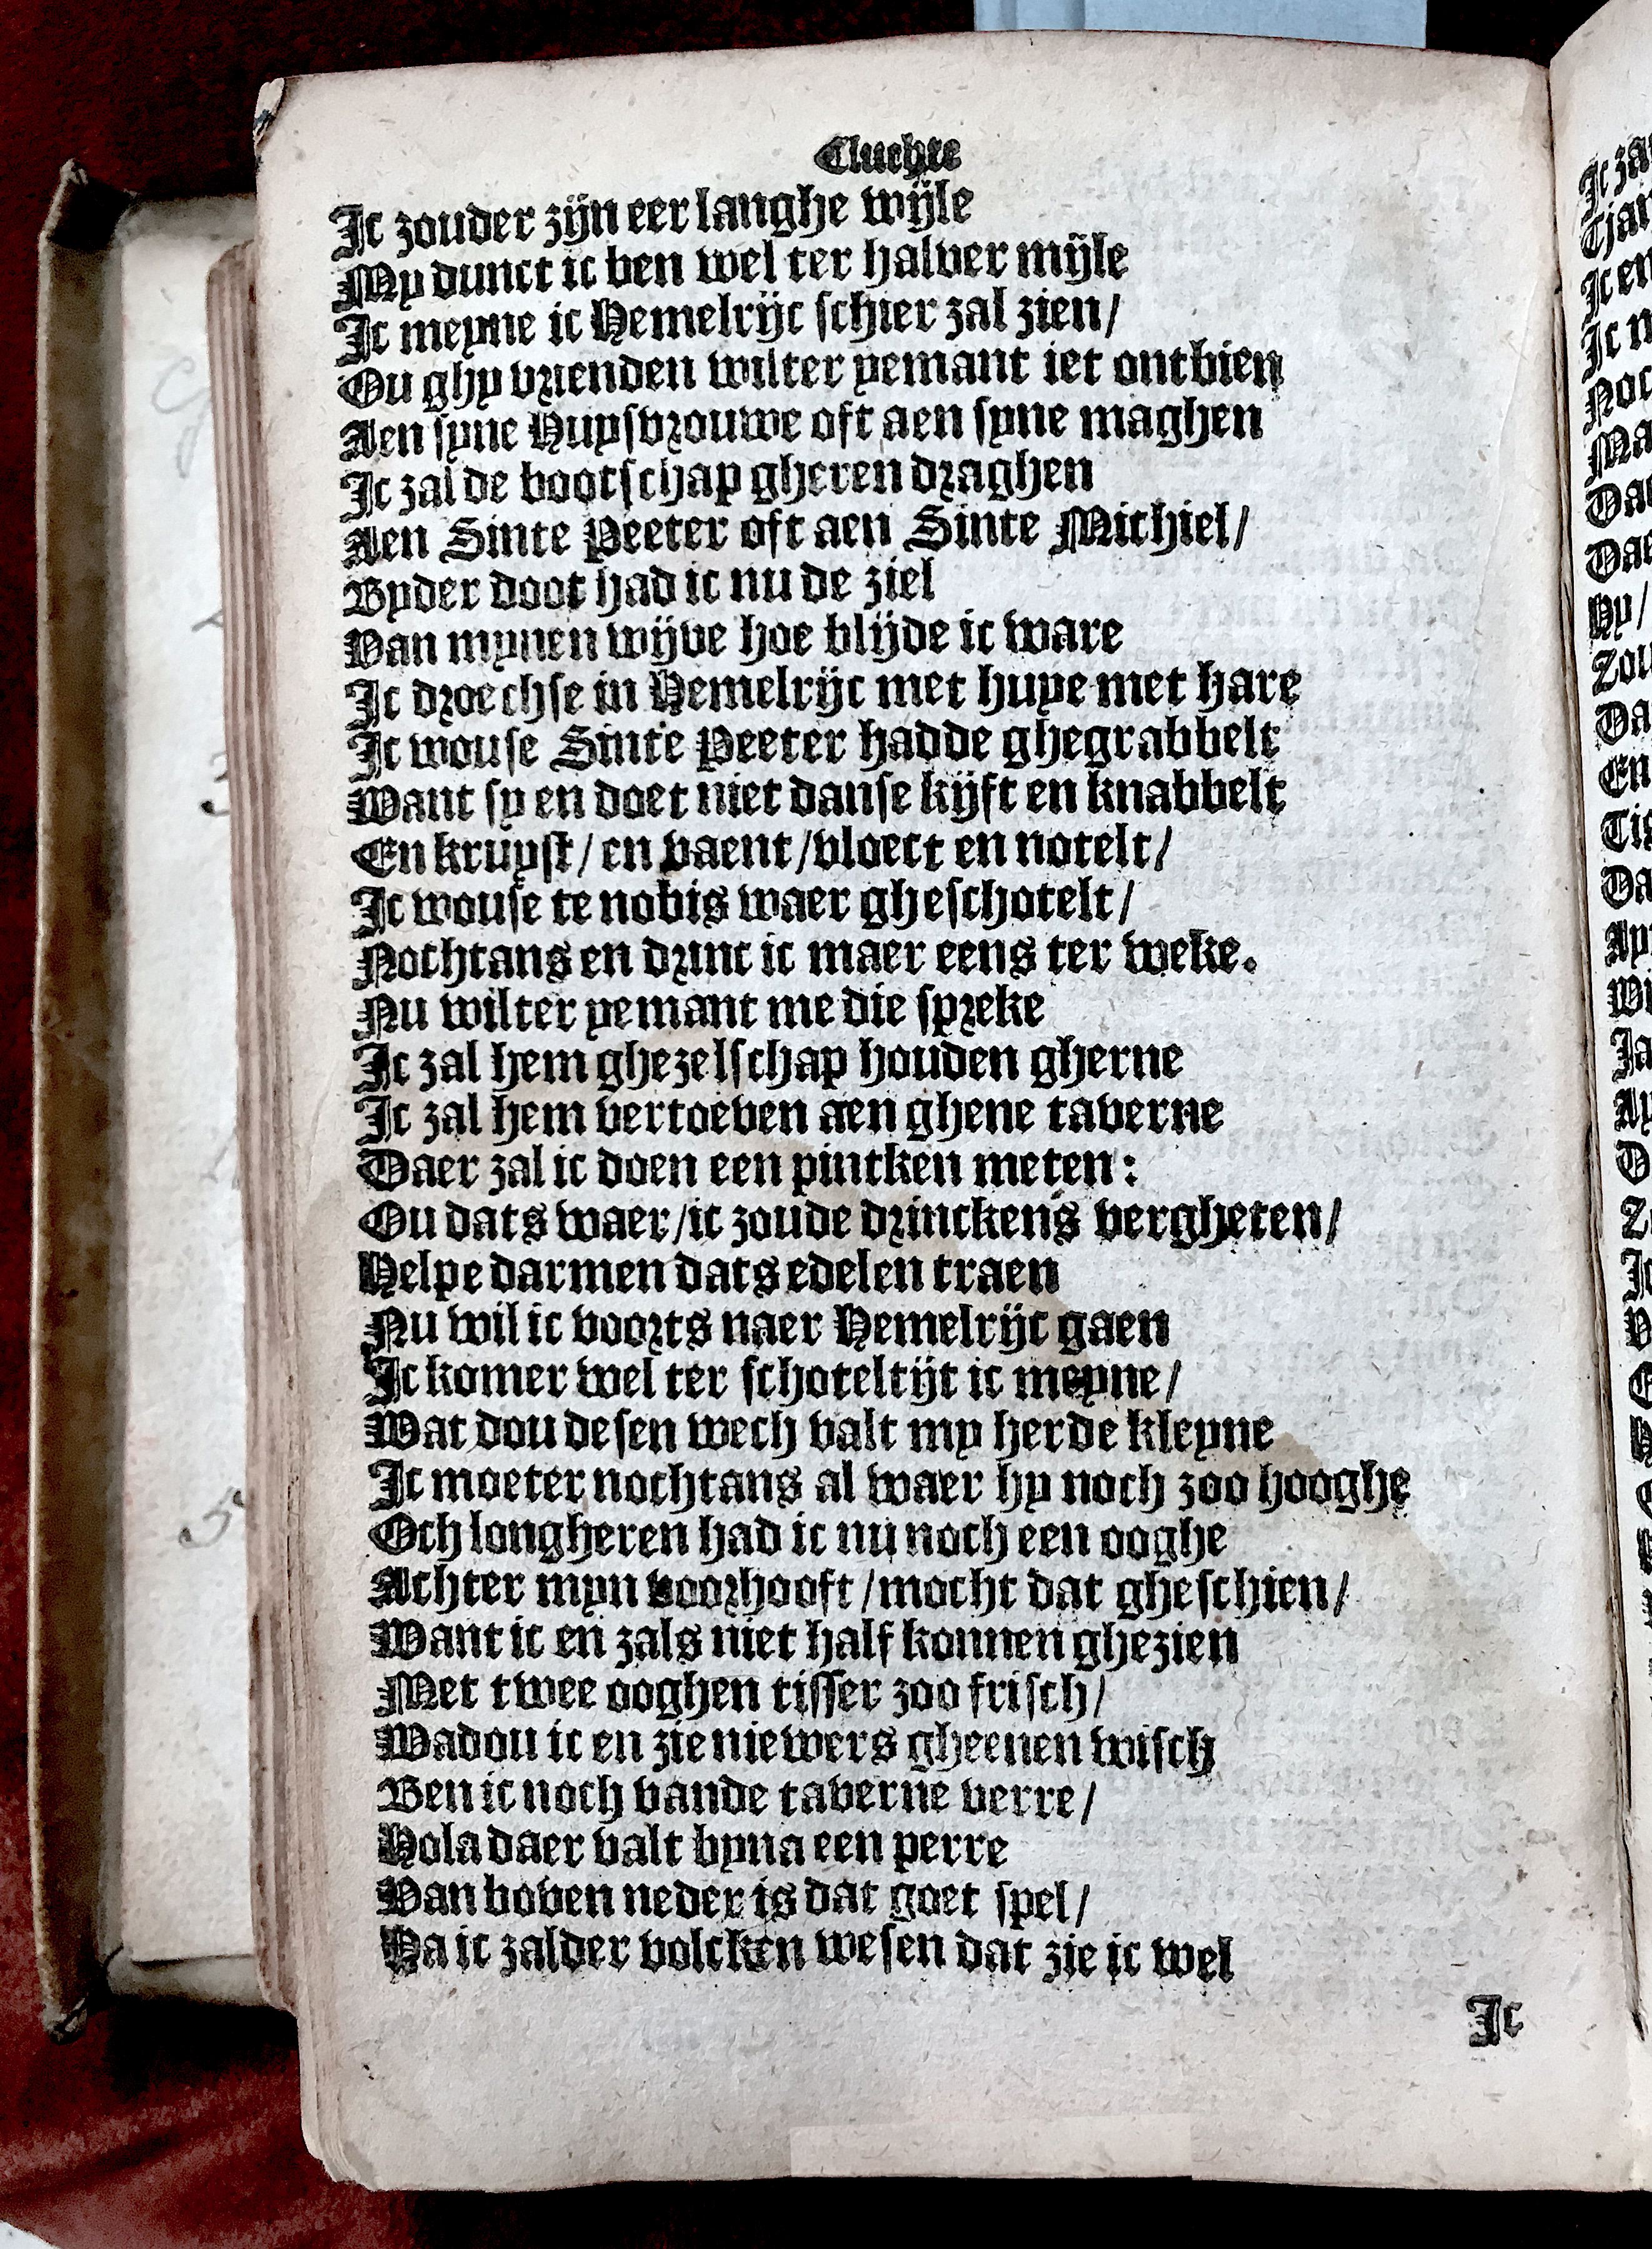 Cluchte
Ic zouder zijn eer langhe wijle
My dunct ic ben wel ter halver mijle
Ic meyne ic Hemelrijc schier zal zien/
Ou ghy vrienden wilter yemant iet ontbien
Aen syne Huysvrouwe oft aen syne maghen
Ic zal de bootschap gheren draghen
Aen Sinte Peeter oft aen Sinte Michiel/
Byder doot had ic nu de ziel
Van mynen wijve hoe blijde ic ware
Ic droechse in Hemelrijc met huye met hare
Ic wouse Sinte Peeter hadde ghegrabbelt
Want sy en doet niet danse kijft en knabbelt
En kruyst/en vaent/vloect en notelt/
Ic wouse te nobis waer gheschotelt/
Nochtans en drinc ic maer eens ter weke.
Nu wilter yemant me die spreke
Ic zal hem ghezelschap houden gherne
Ic zal hem vertoeven aen ghene taverne
Daer zal ic doen een pintken meten:
Ou dats waer/ic zoude drinckens vergheten/
Helpe darmen dats edelen traen
Nu wil ic voorts naer Hemelrijc gaen
Ic komer wel ter schoteltijt ic meyne/
Wat dou desen wech valt my herde kleyne
Ic moeter nochtans al waer hy noch zoo hooghe
Och longheren had ic nu noch een ooghe
Achter myn voorhooft/mocht dat gheschien/
Want ic en zals niet half konnen ghezien
Met twee ooghen tisser zoo frisch/
Wadou ic en zie niewers gheenen wisch
Ben ic noch vande taverne verre/
Hola daer valt byna een perre
Van boven neder is dat goet spel/
Ha ic zalder volcken wesen dat zie ic wel
Ic